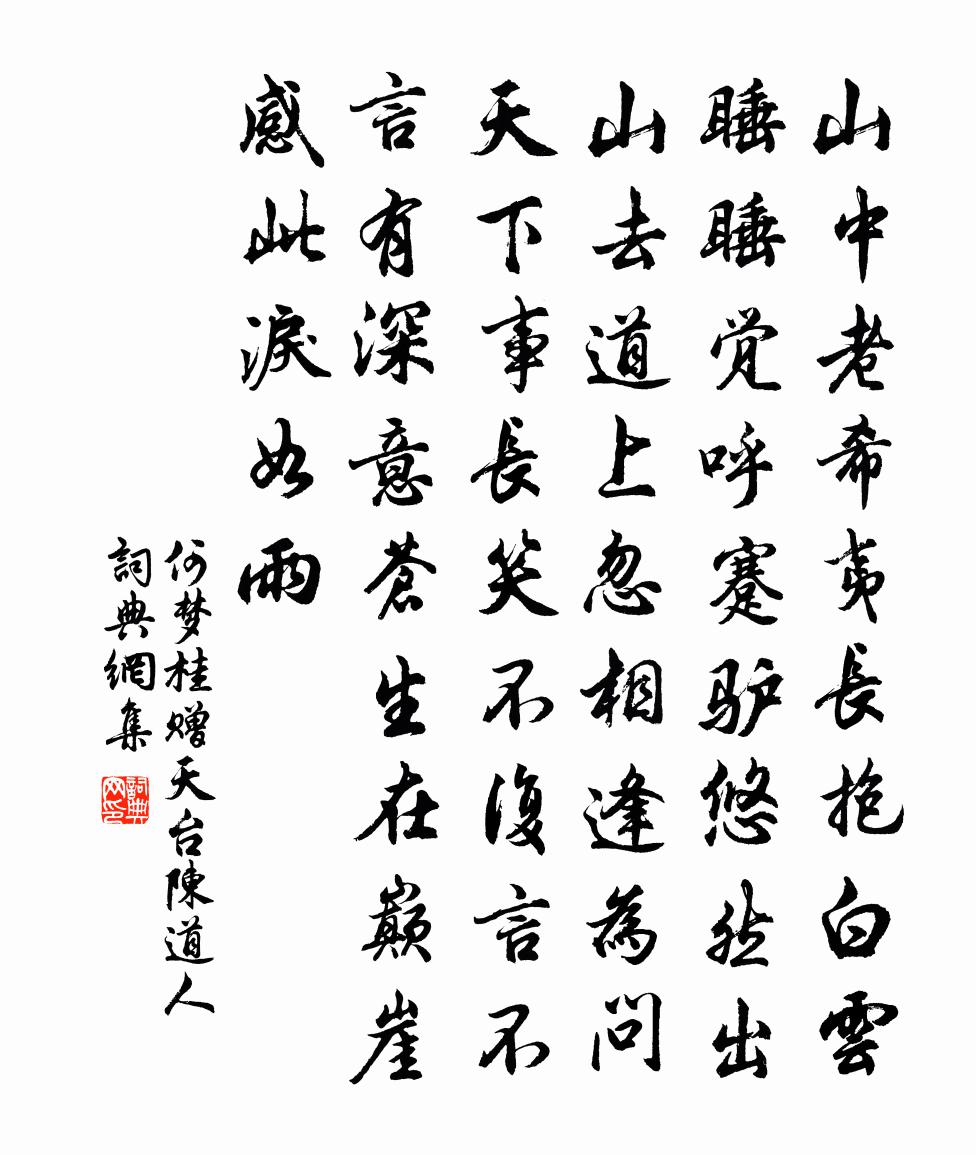 山中老希夷長抱白雲
睡睡觉呼蹇驴悠然出
山去道上忽相逢為問
天下事長笑不復言不
言有深意蒼生在巅崖
感此淚如雨
何梦桂赠天台陳道人
詞典網集
詞典网印